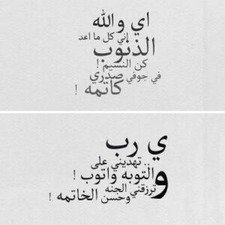 اي والله
إني كل ما اعد
الذنوب
كن النسيم !
في جوفي صدري
كاتمه !
ي رب
.. تهديني على
و التوبه واتوب !
ترزقني الجنه
وحسن الخاتمه !